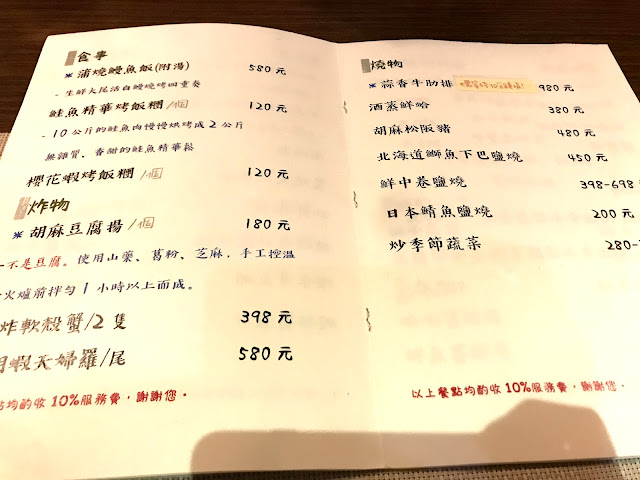 食事
※ 蒲燒鰻魚飯(附湯) 580 元
- 生鮮大尾活白鰻燒烤四重奏
鮭魚精華烤飯糰/個 120 元
- 10 公斤的鮭魚肉慢慢烘烤成 2 公斤
無雜質、香甜的鮭魚精華鬆
櫻花蝦烤飯糰/個 120 元
炸物
※ 胡麻豆腐揚/個 180 元
不是豆腐。使用山藥、葛粉、芝麻,手工控溫
火爐前拌勻 1 小時以上而成。
炸軟殼蟹/2 隻 398 元
蝦天婦羅/尾 580 元
點均酌收 10%服務費,謝謝您。
燒物
※ 蒜香牛肋排 980 元
酒蒸鮮蛤 380 元
胡麻松阪豬 480 元
北海道鰤魚下巴鹽燒 450 元
鮮中卷鹽燒 398-698
日本鯖魚鹽燒 200 元
炒季節蔬菜 280-
以上餐點均酌收 10%服務費,謝謝您。